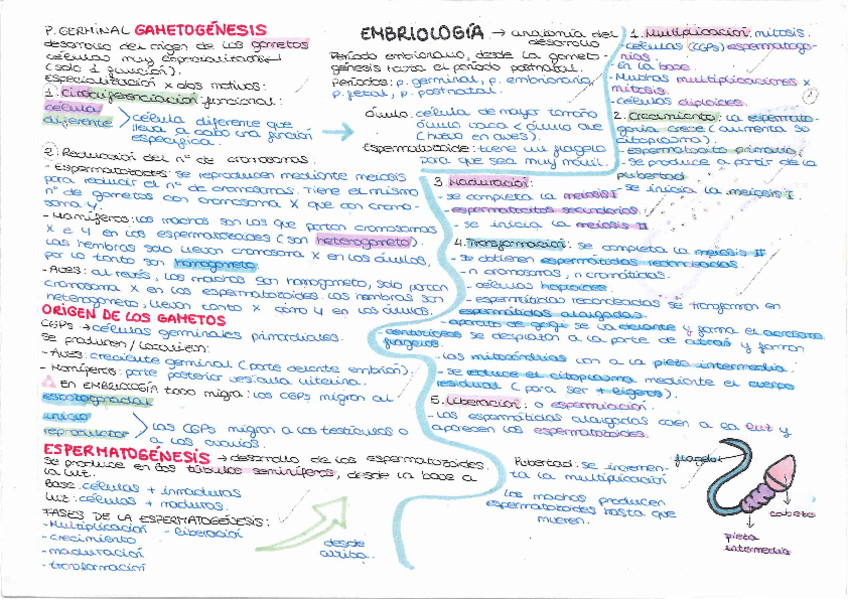 P. GERMINAL GAMETOGÉNESIS
desarrollo del origen de los gametos
células muy especializadas
(solo 1 función).
Especialización x dos motivos:
1. Citodiferenciación funcional:
célula
diferente
célula diferente que
lleva a cabo una función
específica.
2. Reducción del nº de cromosomas.
- Espermatozoides: se reproducen mediante meiosis
para reducir el nº de cromosomas. Tiene el mismo
nº de gametos con cromosoma X que con cromo-
soma Y.
- Mamíferos: los machos son los que portan cromosomas
X e Y en los espermatozoides (son heterogameto).
Las hembras solo llevan cromosoma X en los óvulos,
por lo tanto son homogameto.
- Aves: al revés, los machos son homogameto, solo portan
cromosoma X en los espermatozoides. Las hembras son
heterogameto, llevan tanto X cómo Y en los óvulos.
ORIGEN DE LOS GAMETOS
CGPs → células germinales primordiales.
Se producen/localizan:
- Aves: creciente germinal (parte delante embrión).
- Mamíferos: parte posterior vesícula vitelina.
EN EMBRIOLOGÍA todo migra: los CGPs migran al
esbozo gonadal
inicio
reproductor
los CGPs migran a los testículos o
a los ovarios.
ESPERMATOGÉNESIS → desarrollo de los espermatozoides.
Se produce en los túbulos seminíferos, desde la base a
la luz.
Base: células + inmaduras
Luz: células + maduras.
FASES DE LA ESPERMATOGÉNESIS:
- Multiplicación - liberación
- crecimiento
- maduración
- transformación
desde
arriba.
EMBRIOLOGÍA → anatomía del
desarrollo
Período embrionario, desde la gameto-
génesis hasta el período postnatal.
Períodos: p. germinal, p. embrionario,
p. fetal, p. postnatal.
óvulo: célula de mayor tamaño
óvulo vaca < óvulo ave
(huevo en aves).
Espermatozoide: tiene un flagelo
para que sea muy móvil.
1. Multiplicación: mitosis.
- células (CGPs) espermatogo-
nias.
- en la base.
- Muchas multiplicaciones x
mitosis.
- células diploides.
2. Crecimiento: la espermato-
gonia crece (aumenta su
citoplasma).
- espermatocito primario.
- se produce a partir de la
pubertad
- se inicia la meiosis I.
3. Maduración:
- se completa la meiosis I
- espermatocitos secundarios.
- se inicia la meiosis II
4. Transformación: se completa la meiosis II
- se obtienen espermátidas redondeadas.
- n cromosomas, n cromátidas.
- células haploides.
- espermátidas redondeadas se transforman en
espermátidas alargadas.
- aparato de golgi se va delante y forma el acrosoma
- centríolos se desplazan a la parte de atrás y forman
flagelos.
- las mitocondrias van a la pieza intermedia.
- se reduce el citoplasma mediante el cuerpo
residual (para ser + ligeros).
5. Liberación: o espermiación.
- las espermátidas alargadas caen a la luz y
aparecen los espermatozoides.
Pubertad: se incremen-
ta la multiplicación
los machos producen
espermatozoides hasta que
mueren.
flagelo
cabeza
pieza
intermedia